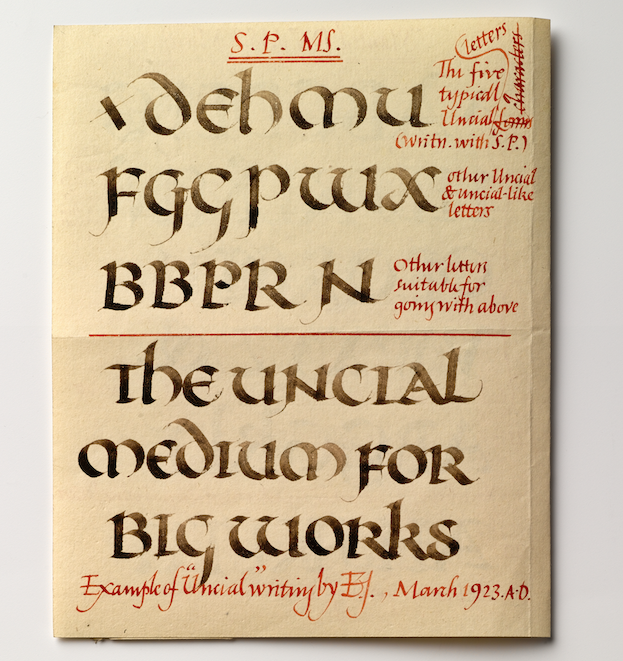 S. P. MS.
dehmu
letters
The five
typical
Uncial forms
characters
(writn. with S.P.)
FGGPWX
other Uncial
& uncial-like
letters
BBPR N
Other letters
suitable for
going with above
The UNCIAL
MEDIUM FOR
BIG WORKS
Example of "Uncial" writing by EJ., March 1923.A.D.